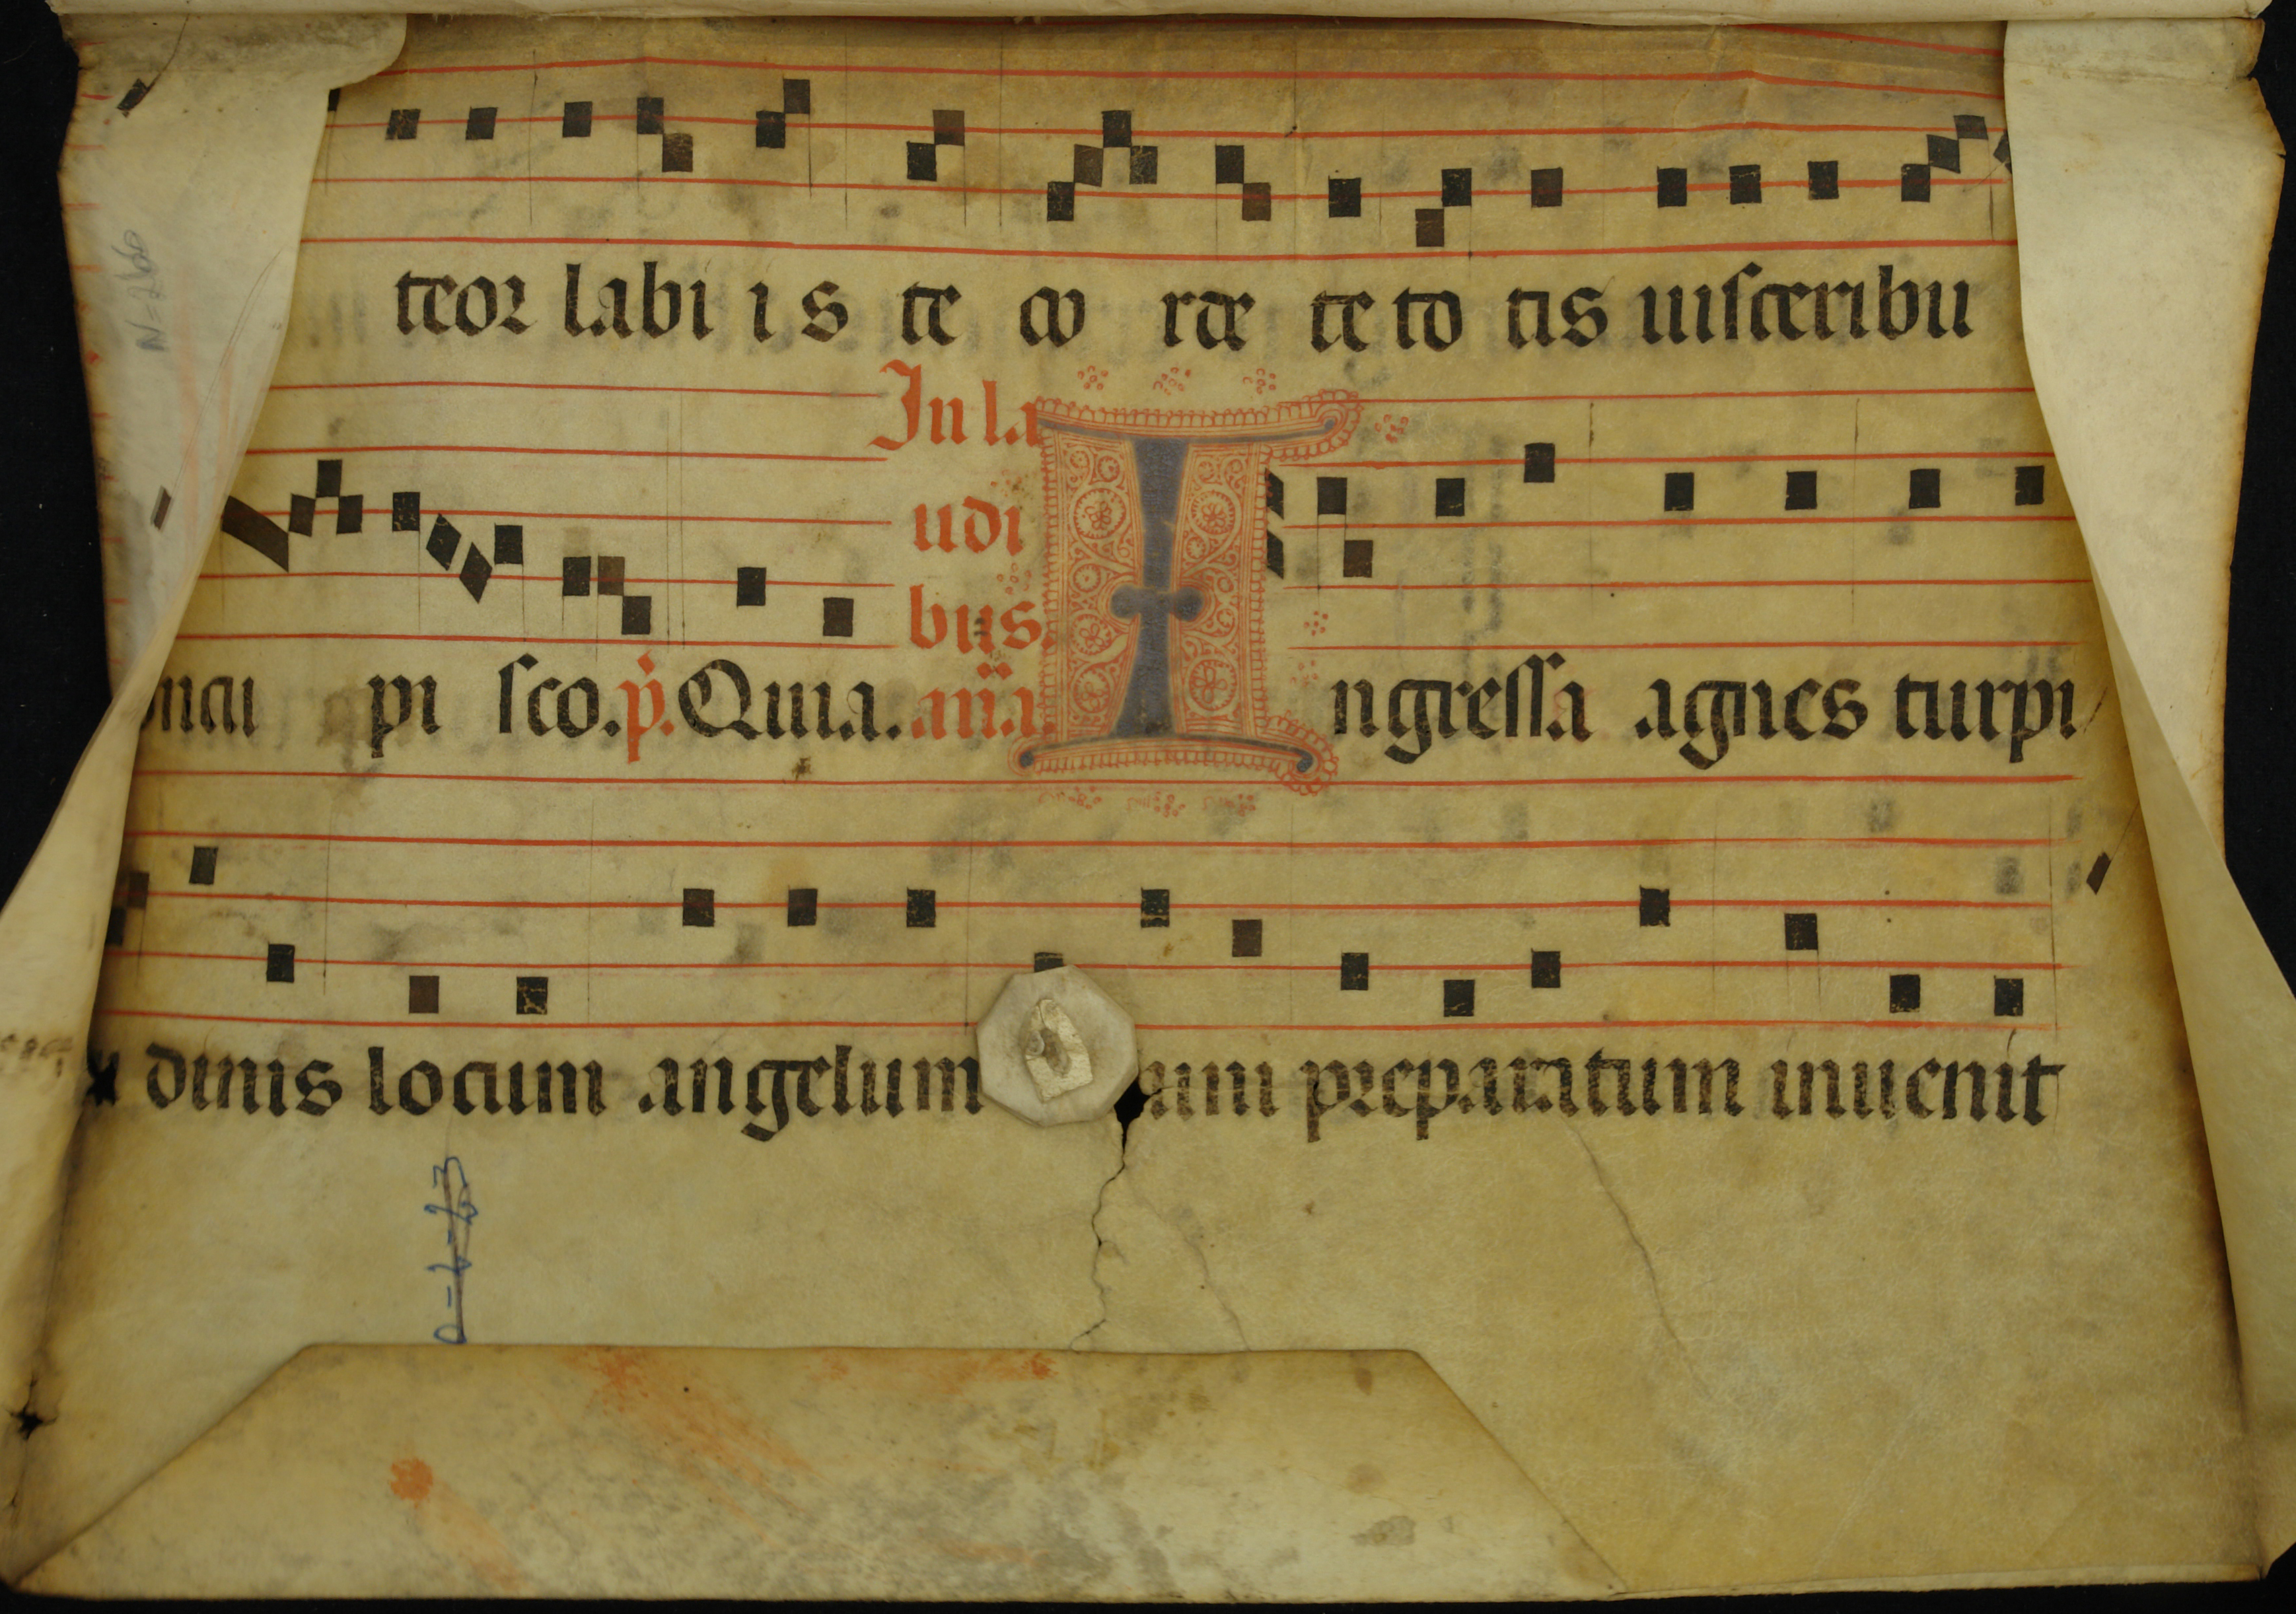 teor labi i s te co rde te to tis uisceribu
In la
udi
bus.
ncu pi sco. p. Quia. ana. Ingressa agnes turpi
dinis locum angelum preparatum inuenit
N=266